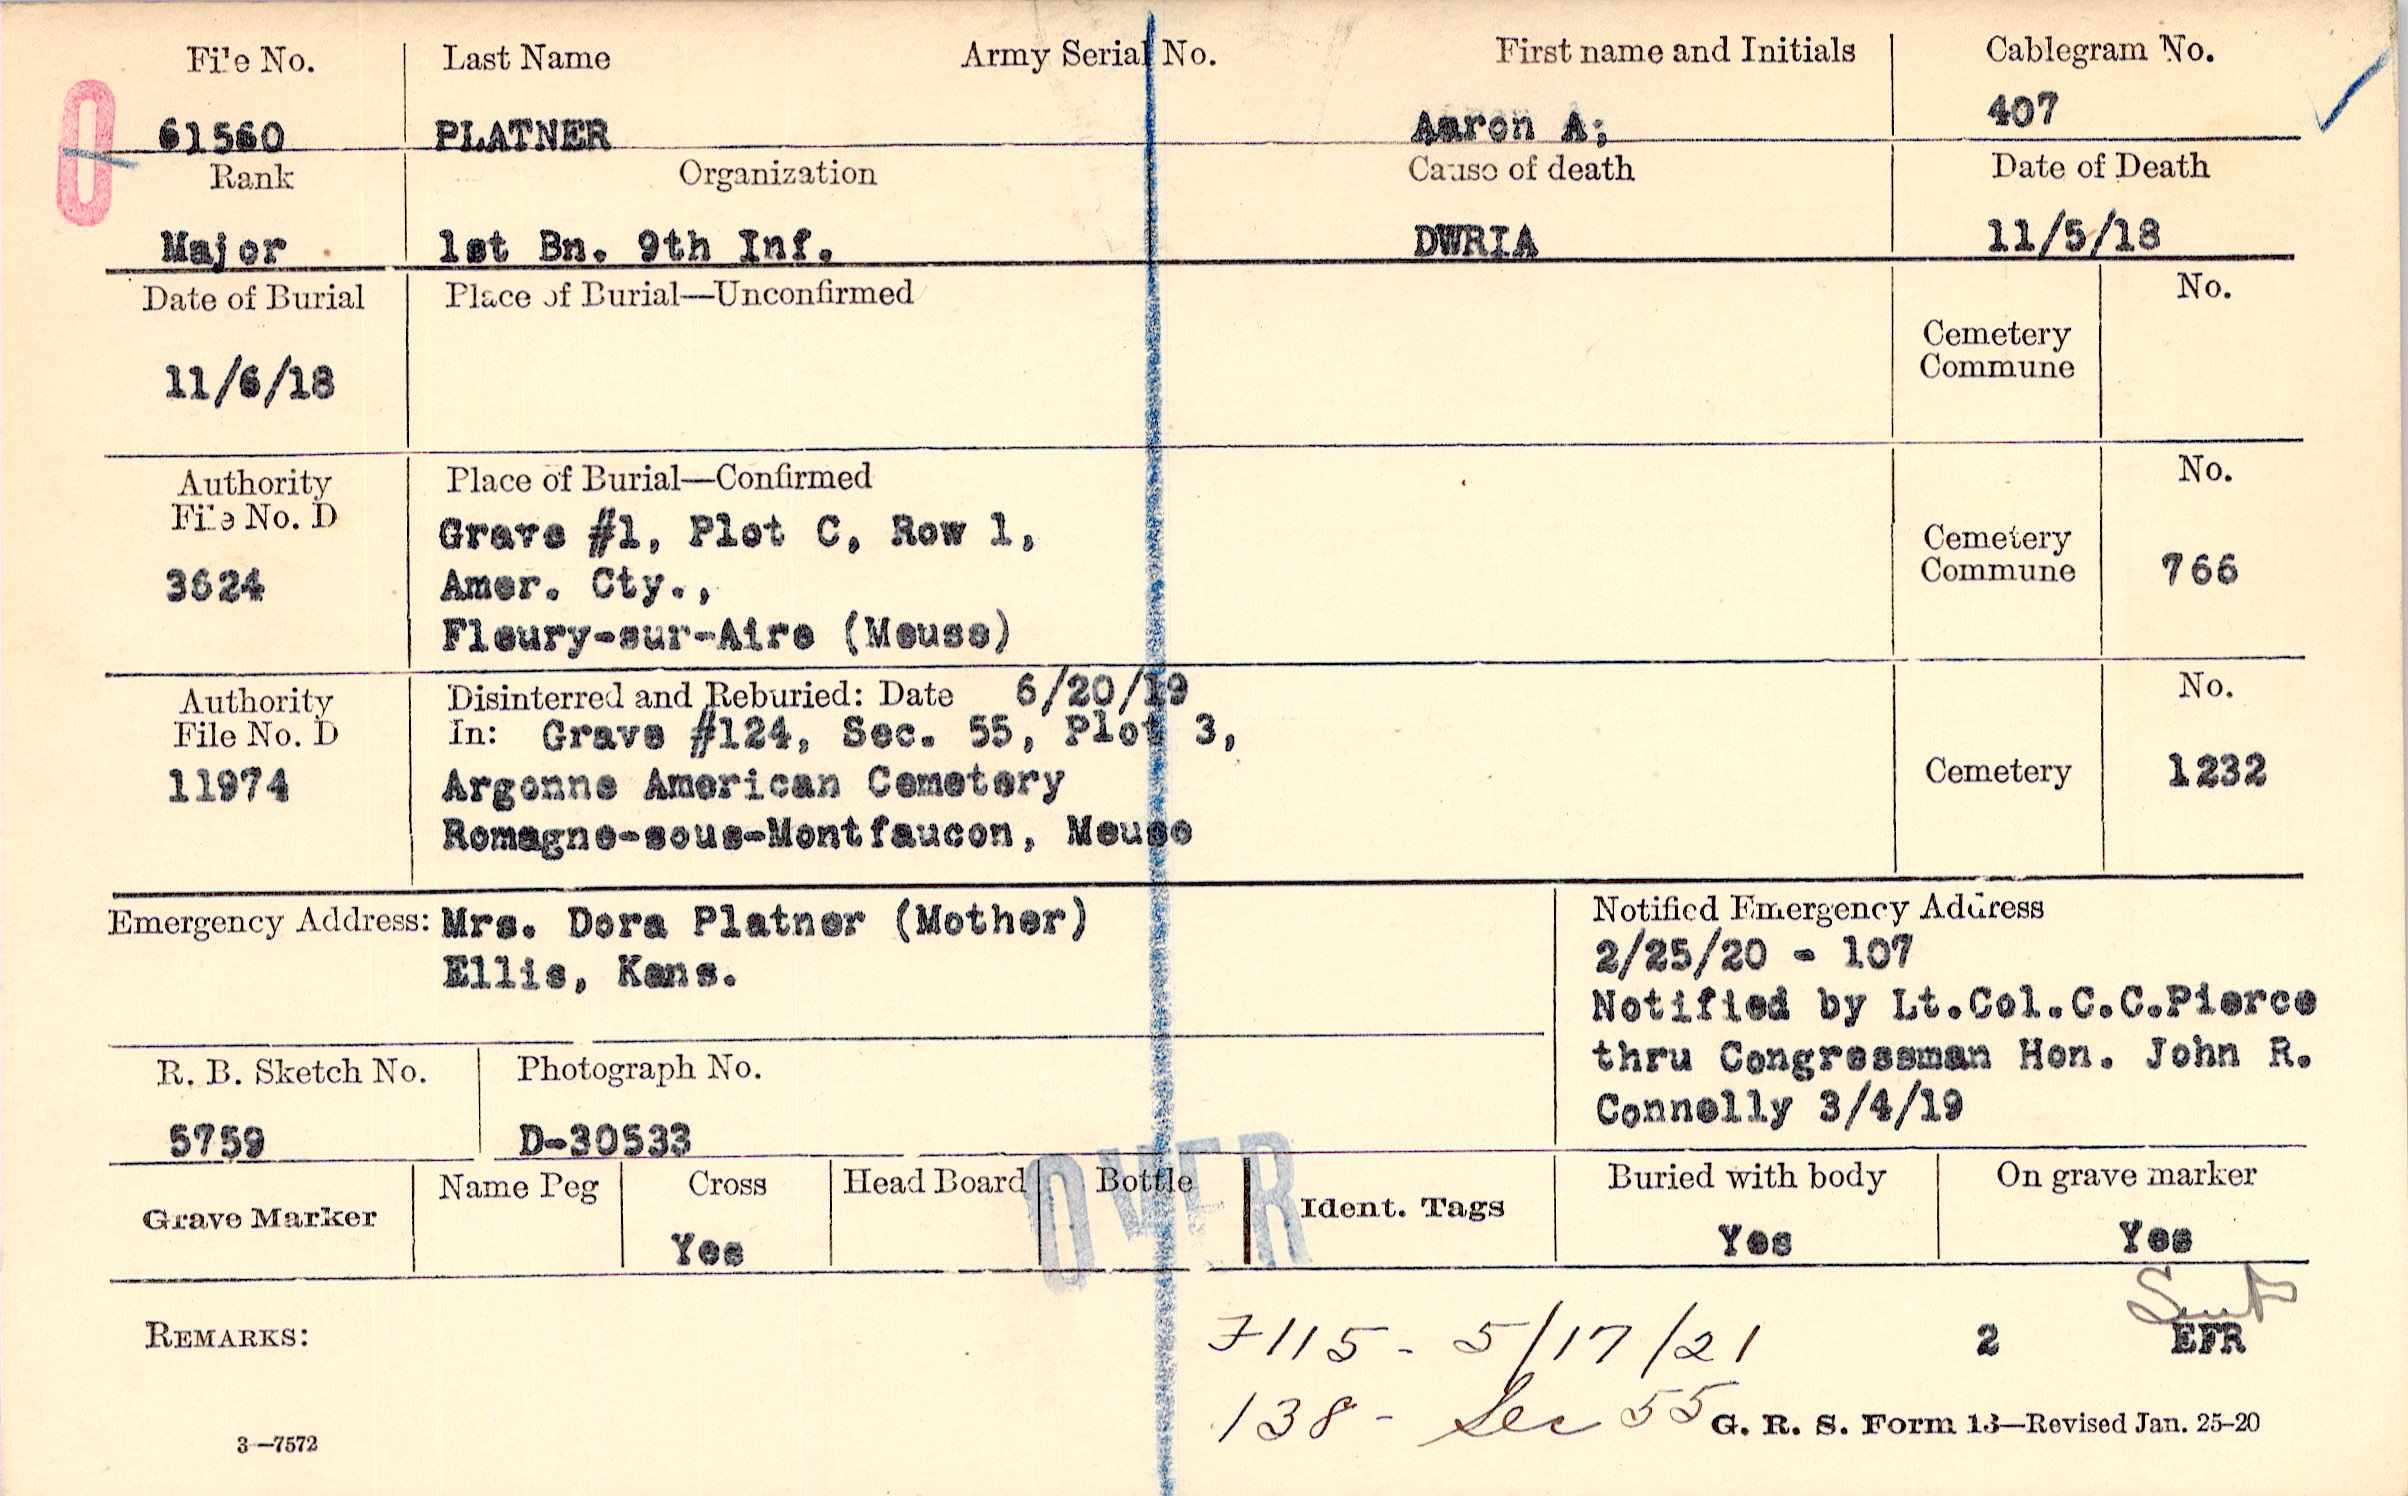 File No. Last Name Army Serial No. First name and Initials Cablegram No.
61560 PLATNER Aaron A; 407
Rank Organization Cause of death Date of Death
Major 1st Bn. 9th Inf. DWRIA 11/5/18
Date of Burial Place of Burial—Unconfirmed No.
Cemetery
Commune
11/6/18
Authority Place of Burial—Confirmed No.
File No. D
Grave #1, Plot C, Row 1,
Cemetery
3624 Amer. Cty., Commune 766
Fleury-sur-Aire (Meuse)
Authority Disinterred and Reburied: Date 6/20/19 No.
File No. D In: Grave #124, Sec. 55, Plot 3,
11974 Argonne American Cemetery Cemetery 1232
Romagne-sous-Montfaucon, Meuse
Emergency Address: Mrs. Dora Platner (Mother)
Ellis, Kans.
Notified Emergency Address
2/25/20 - 107
Notified by Lt.Col.C.C.Pierce
thru Congressman Hon. John R.
Connelly 3/4/19
R. B. Sketch No. Photograph No.
5759 D-30533
OVER
Grave Marker Name Peg Cross Head Board Bottle Ident. Tags Buried with body On grave marker
Yes Yes Yes
REMARKS: 7115 - 5/17/21 2 EFR
138 - Sec 55 G. R. S. Form 13—Revised Jan. 25-20
3—7572